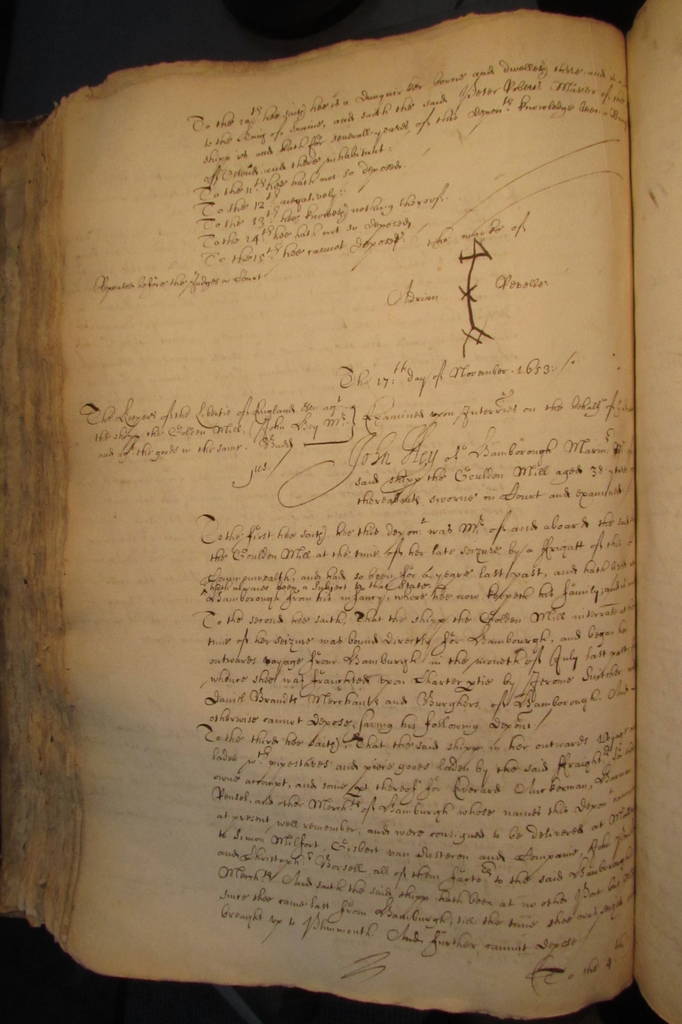 To the 10th hee saith hee is a Dunquirker borne and dwelleth there and
to the King of Spaine, and saith the said Peter Master of the
shipp is and hath for severall yeares of this deponents knowledge been
of Ostend and there inhabitant.
To the 11th hee hath not so deposed.
To the 12th negatively.
To the 13th hee knoweth nothing thereof.
To the 14th hee hath not so deposed
To the 15th hee cannot depose
the marke of
Repeated before the Judges in Court
Adrian
The 17th day of November 1653:
The Keepers of the Libertie of England &c agt
the shipp the Goulden Mill (John Rey Mr)
and of the goods in the same.
Examined upon Interries on the behalf of
John Rey of Hamborough Marinr
said shipp the Goulden Mill aged 38 yeares
thereabouts sworne in Court and examined
To the first hee saith hee this depont was Mr of and aboard the said
the Goulden Mill at the time of her late seizure by a ffrigatt of this
Commonwealth, and had so been for yeares last past, and hath lived
hath alwaies been a subject to that State
Hamborough from his infancy, where hee now keepeth his family, and
To the second hee saith, That the shipp the Golden Mill interrate at the
time of her seizure was bound directly for Hambourgh, and began her
outwards voyage from Hamburgh in the moneth of July last past
whence shee was fraughted upon Charter ptie by Jerome and
David Brandts Merchants and Burghers of Hamborough. And
otherwise cannot depose, saving his following depont
To the third hee saith, That the said shipp in her outwards voyage
laden wth pipestaves and piece goods laden by the said ffraighters
owne accompt, and some pt thereof for Everard
and other Merchts of Hamburgh whose names this depont
at present well remember, and were consigned to be delivered at
to Simon Gisbert van and Companie, John
and Christopher all of them factors to the said Hamborough
Merchts And saith the said shipp hath been at no other Port but
since shee came last from Hamburgh, till the time shee was seized and
brought up to Plimmouth. And further cannot depose
To the 4th